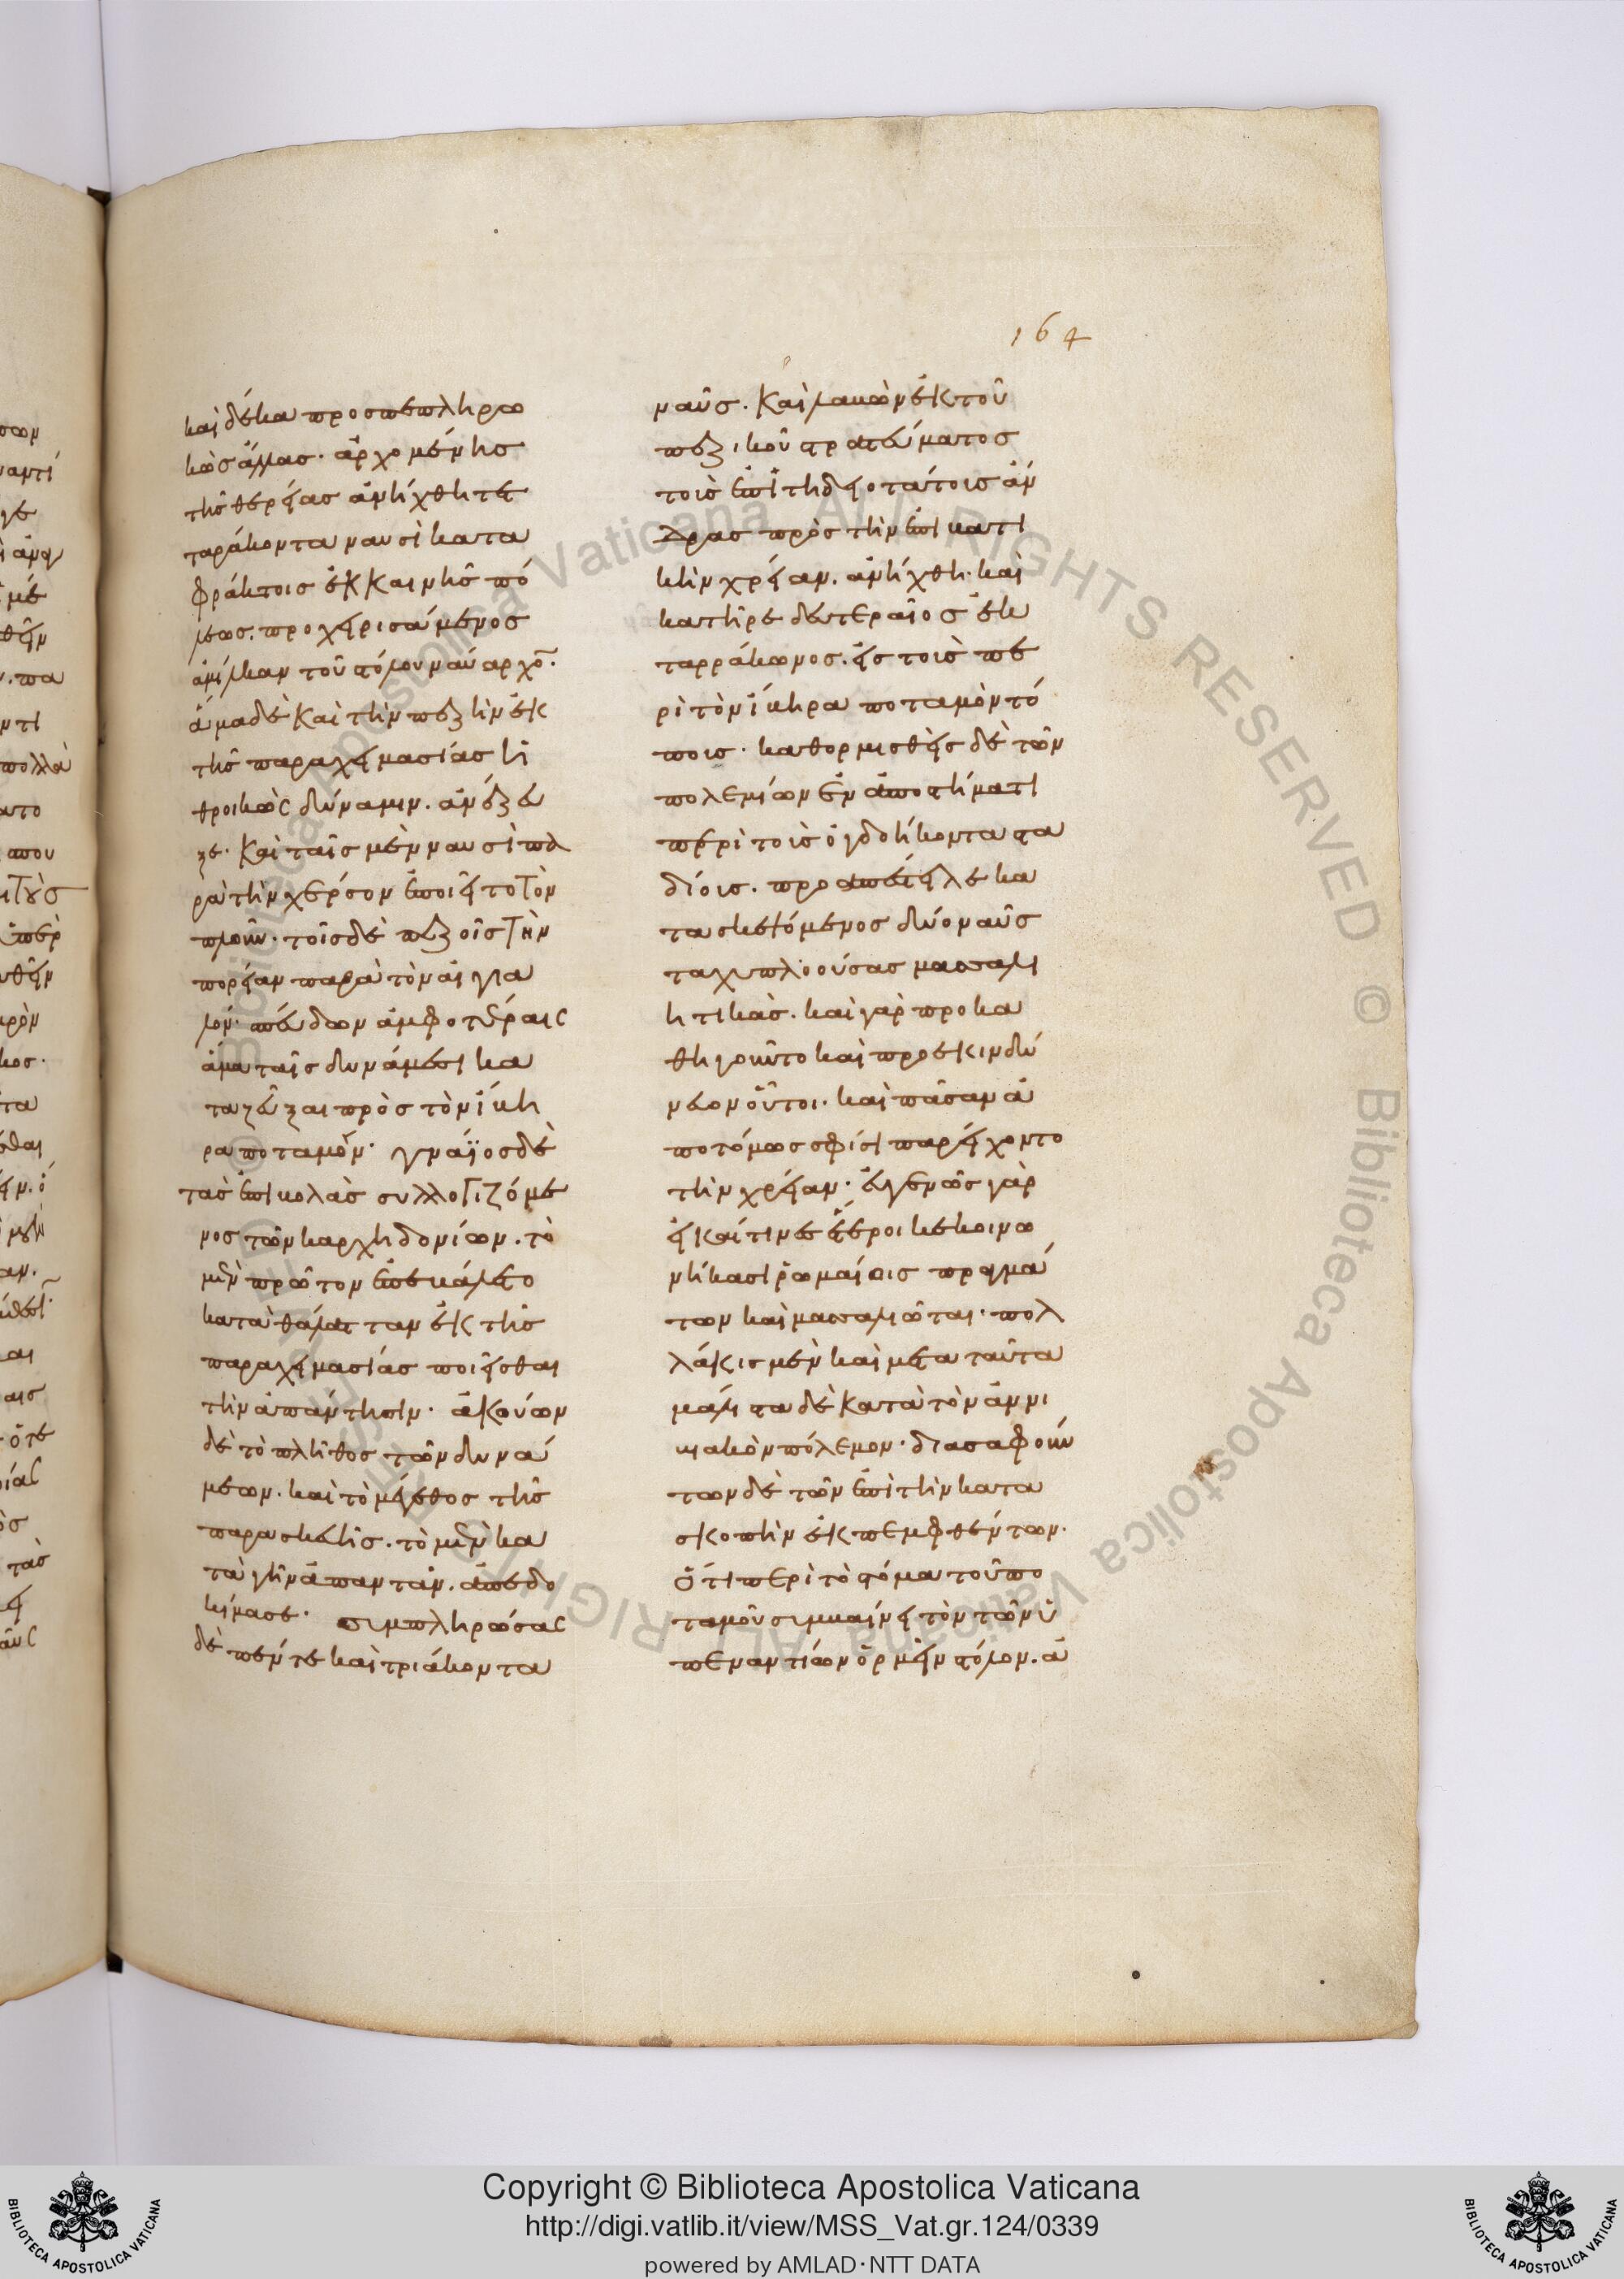 164
καὶ δέκα προσπεπληρω
κὼς ἄλλας· ἀρχομένης
τῆς θερείας ἀνήχθη τετ
ταράκοντα ναυσὶ κατα
φράκτοις ἐκ Καινῆς πό
λεως· προχειρισάμενος
ἀμίλκαν τοῦ στόλου ναύαρχο̅·
ἅμα δὲ καὶ τὴν πεζὴν ἐκ
τῆς παραχειμασίας ἡ
θροικὼς δύναμιν· ἀνέζευ
ξε· καὶ ταῖς μὲν ναυσὶ πα
ρὰ τὴν χέρσον ἐποιεῖτο τὸν
πλοῦν· τοῖς δὲ πεζοῖς τὴν
πορείαν παρὰ τὸν αἰγια
λόν· σπεύδων ἀμφοτέραις
ἅμα ταῖς δυνάμεσι κα
ταζεῦξαι πρὸς τὸν ἴβη
ρα ποταμόν· γνάϊος δὲ
τὰς ἐπιβολὰς συλλογιζόμε
νος τῶν καρχηδονίων· τὸ
μὲν πρῶτον ἐπεβάλετο
κατὰ θάλατταν ἐκ τῆς
παραχειμασίας ποιεῖσθαι
τὴν ἀπάντησιν· ἀκούων
δὲ τὸ πλῆθος τῶν δυνά
μεων· καὶ τὸ μέγεθος τῆς
παρασκευῆς· τὸ μὲν κα
τὰ γῆν ἀπαντᾶν· ἀπεδο
κίμασε· συμπληρώσας
δὲ πέντε καὶ τριάκοντα
ναῦς· καὶ λαβὼν ἐκ τοῦ
πεζικοῦ στρατεύματος
τοὺς ἐπιτηδειοτάτους ἄν
δρας πρὸς τὴν ἐπιβατι
κὴν χρείαν· ἀνήχθη· καὶ
κατῆρε δευτεραῖος ἐκ
ταρράκωνος· εἰς τοὺς πε
ρὶ τὸν ἴβηρα ποταμὸν τό
πους· καθορμισθεὶς δὲ τῶν
πολεμίων ἐν ἀποστήματι
περὶ τοὺς ὀγδοήκοντα στα
δίους· προαπέστειλε κα
τασκεψόμενος δύο ναῦς
ταχυπλοούσας μασσαλι
ητικάς· καὶ γὰρ προκα
θηγοῦντο καὶ προεκινδύ
νευον οὗτοι· καὶ πᾶσαν ἀ
ποτόμως σφίσι παρείχοντο
τὴν χρείαν· εὐγενῶς γὰρ
εἰ καί τινες ἕτεροι κεκοινω
νήκασι ῥωμαίοις πραγμά
των καὶ μασσαλιῶται· πολ
λάκις μὲν καὶ μετα ταῦτα
μάλιστα δὲ κατὰ τὸν ἀννι
βιακὸν πόλεμον· διασαφούν
των δὲ τῶν ἐπὶ τὴν κατα
σκοπὴν ἐκπεμφθέντων·
ὅτι περὶ τὸ στόμα τοῦ πο
ταμοῦ συμβαίνει τὸν τῶν ὑ
πεναντίων ὁρμεῖν στόλον· ἀ
Copyright © Biblioteca Apostolica Vaticana
http://digi.vatlib.it/view/MSS_Vat.gr.124/0339
powered by AMLAD·NTT DATA